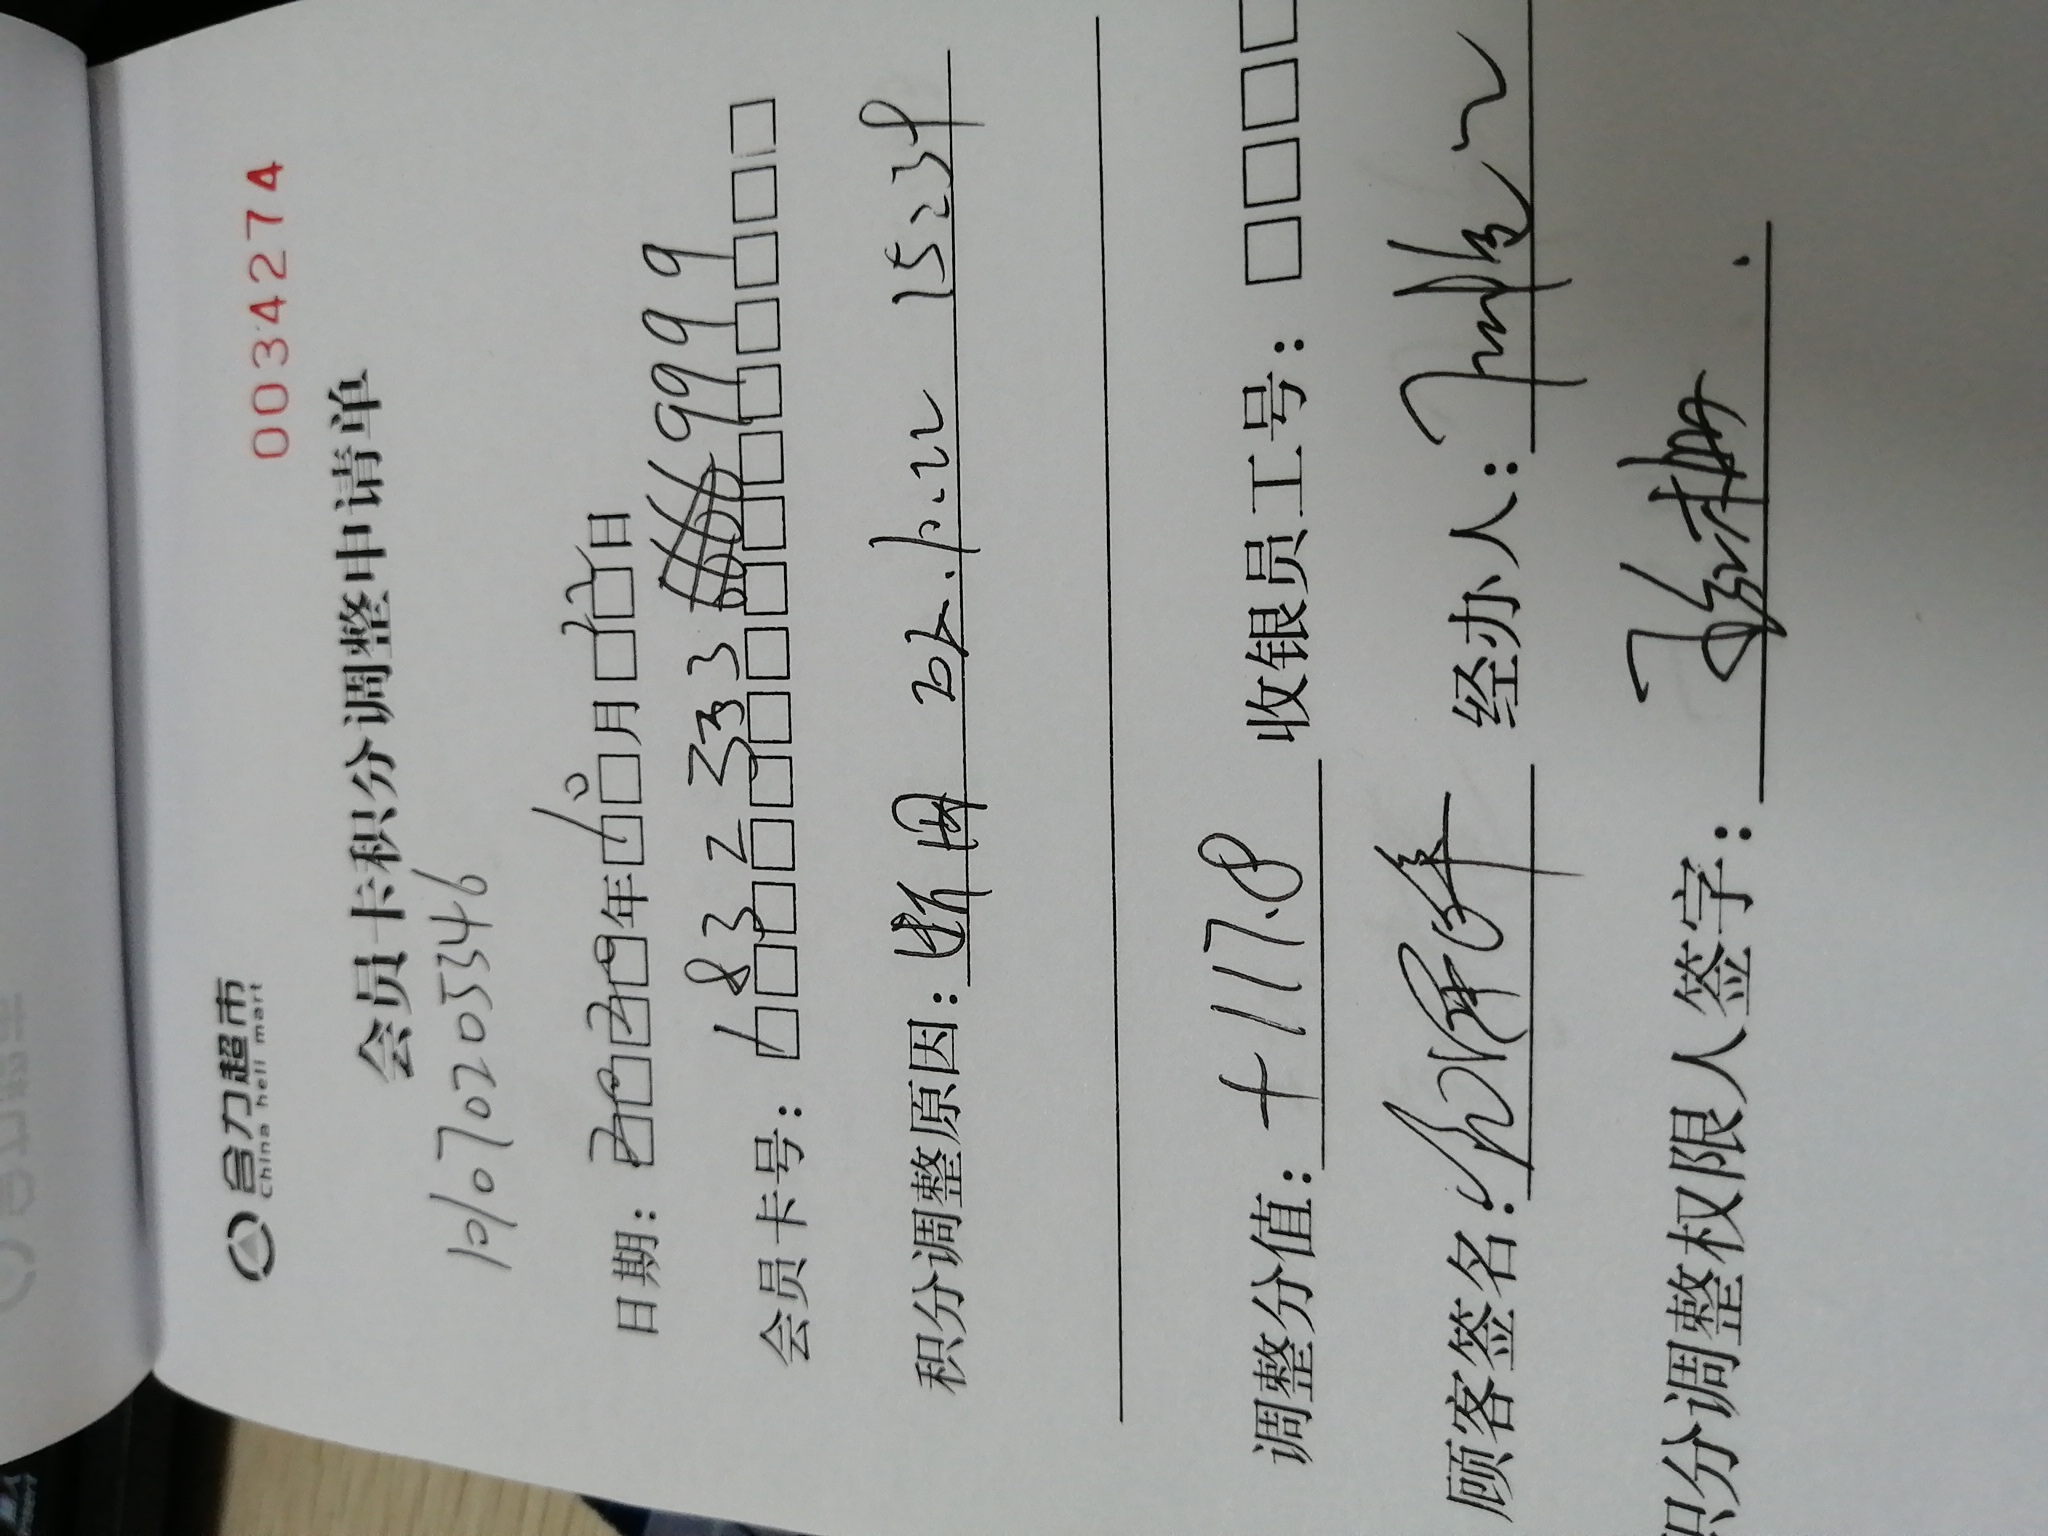 合力超市
China heli mart
0034274
会员卡积分调整申请单
10107020205346
日期：2029年10月22日
会员卡号：1832333 9999
积分调整原因：断网 10.22 1523
调整分值：+1117.8 收银员工号：
顾客签名： 经办人：
积分调整权限人签字：